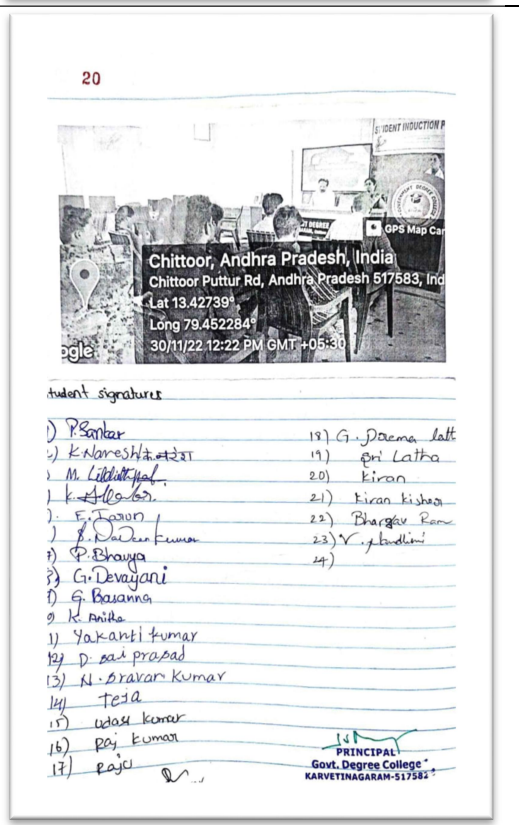 20
STUDENT INDUCTION P
GPS Map Car
Chittoor, Andhra Pradesh, India
Chittoor Puttur Rd, Andhra Pradesh 517583, Ind
Lat 13.42739°
Long 79.452284°
30/11/22 12:22 PM GMT +05:30
ogle
tudent signatures
) P. Sankar
) K. Naresh के. नरेश
) M.
) K.
) E. Tarun
) Naveen kumar
7) P. Bhavya
8) G. Devayani
9) G. Basanna
0) K. Anitha
1) Yakanti kumar
12) D. sai prasad
13) N. sravan kumar
14) Teja
15) uday kumar
16) Raj kumar
17) Raju
18) G. Prema latt
19) Sri Latha
20) Kiran
21) Kiran Kishor
22) Bhargav Ram
23) V.
24)
PRINCIPAL
Govt. Degree College
KARVETINAGARAM-517582